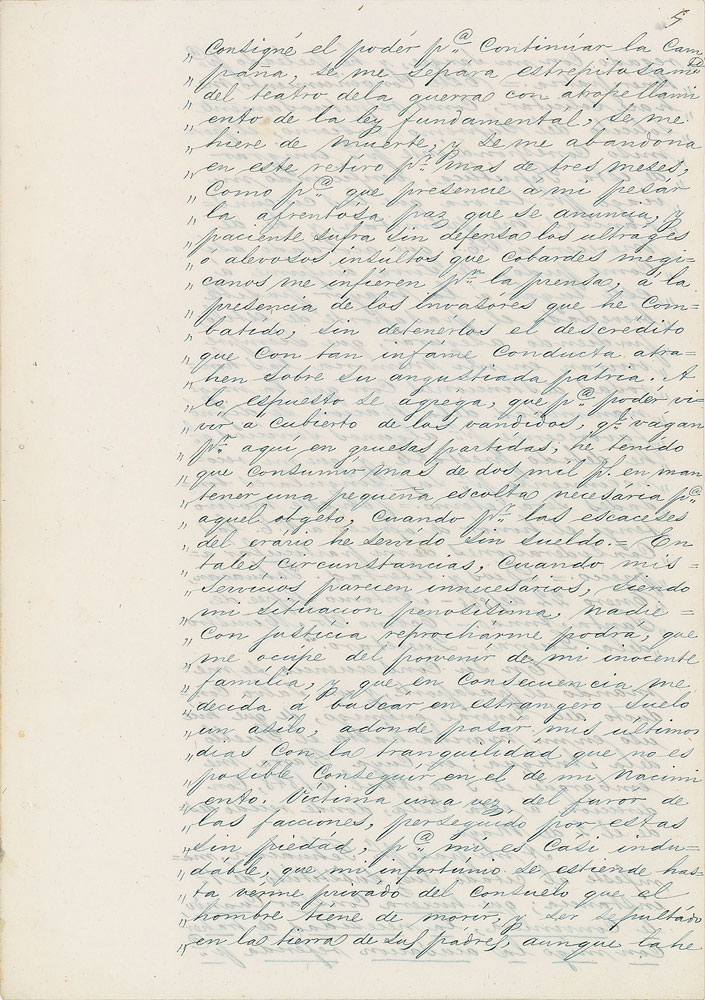 5
„ Consigné el podér p.ª continuár la Cam
„ paña, se me sepára estrepitosam.te
„ del teatro dela guerra con atropellami
„ ento de la ley fundamental, se me
„ hiere de muerte, y se me abandóna
„ en este retíro p.r mas de tres meses,
„ Como p.ª que presencie á mi pesár
„ la afrentósa paz que se anuncia, y
„ paciente sufra sin defensa los ultrages
„ ó alevosos insúltos que cobardes megi-
„ canos me infieren p.r la prensa, á la
„ presencia de los invasores que he Com=
„ batido, sin detenérlos el descrédito
„ que con tan infáme Conducta atra=
„ hen sobre su angustiada pátria. A
„ lo espuesto se agrega, que p.ª poder vi=
„ vir a cubierto de los vandidos, q.e vagan
„ p.r aquí en gruesas partidas, he tenido
„ que consumir mas de dos mil p.s en man
„ tenér una pequeña escolta necesária p.ª
„ aquel obgeto, Cuando p.r las escaceses
„ del erário he servido sin sueldo.= En
„ tales circunstancias, Cuando mis =
„ Servicios parecen innecesários, siendo
„ mi situacion penosísima, nadie =
„ Con justícia reprochárme podrá, que
„ me ocúpe del porvenir de mi inocente
„ familia, y que en Consecuencia me
„ decída á buscár en estrangero suelo
„ un asílo, adonde pasár mis últimos
„ dias Con la tranquilidád que no es
„ posible Conseguir en el de mi Nacimi
„ ento. Víctima una vez del furór de
„ las facciones, perseguido por estas
„ sin piedád, p.ª mi es Cási indu=
„ dáble, que mi infortúnio se estiende has=
„ ta verme privádo del Consuelo que el
„ hombre tiéne de morír, y ser sepultádo
„ en la tierra de sus padres, aunque la he